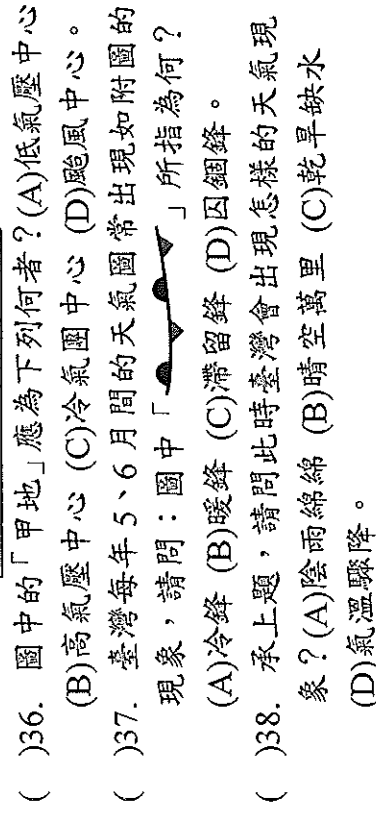 (　)36. 圖中的「甲地」應為下列何者？(A)低氣壓中心
(B)高氣壓中心 (C)冷氣團中心 (D)颱風中心。
(　)37. 臺灣每年5、6月間的天氣圖常出現如附圖的
現象，請問：圖中「　」所指為何？
(A)冷鋒 (B)暖鋒 (C)滯留鋒 (D)囚錮鋒。
(　)38. 承上題，請問此時臺灣會出現怎樣的天氣現
象？(A)陰雨綿綿 (B)晴空萬里 (C)乾旱缺水
(D)氣溫驟降。